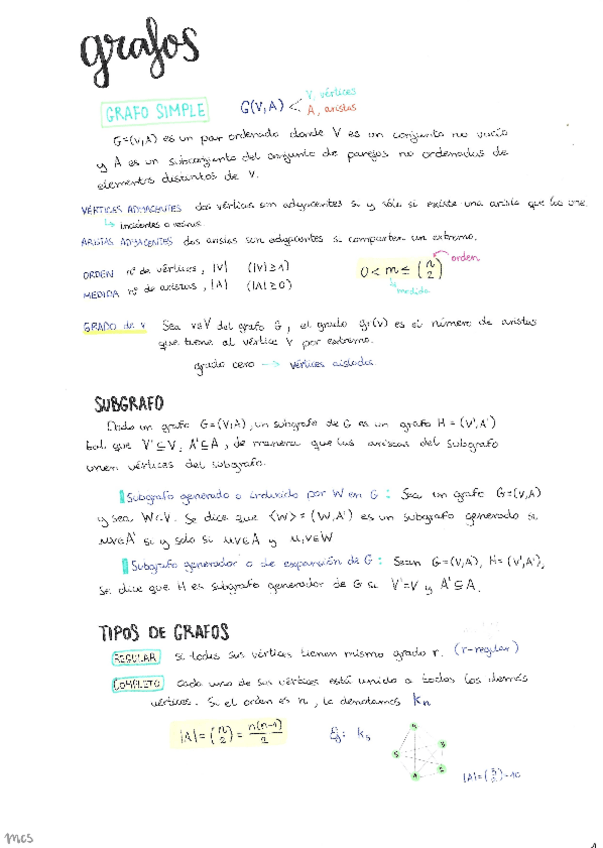 grafos
GRAFO SIMPLE G(V,A) < V, vértices
A, aristas
G=(V,A) es un par ordenado donde V es un conjunto no vacío
y A es un subconjunto del conjunto de parejas no ordenadas de
elementos distintos de V.
VÉRTICES ADYACENTES dos vértices son adyacentes si y sólo si existe una arista que los une.
↳ incidentes o vecinos
ARISTAS ADYACENTES dos aristas son adyacentes si comparten un extremo.
ORDEN nº de vértices, |V| (|V|≥1)
MEDIDA nº de aristas, |A| (|A|≥0)
0 < m ≤ (n 2) orden
medida
GRADO de v Sea v∈V del grafo G, el grado gr(v) es el número de aristas
que tiene al vértice v por extremo.
grado cero → vértices aislados
SUBGRAFO
Dado un grafo G=(V,A), un subgrafo de G es un grafo H = (V',A')
tal que V'⊆V, A'⊆A, de manera que las aristas del subgrafo
unen vértices del subgrafo.
Subgrafo generado o inducido por W en G : Sea un grafo G=(V,A)
y sea W⊂V. Se dice que <W> = (W,A') es un subgrafo generado si
uv∈A' si y solo si uv∈A y u,v∈W
Subgrafo generador o de expansión de G : Sean G=(V,A), H=(V',A'),
se dice que H es subgrafo generador de G si V'=V y A'⊆A.
TIPOS DE GRAFOS
REGULAR si todos sus vértices tienen mismo grado r. (r-regular)
COMPLETO cada uno de sus vértices está unido a todos los demás
vértices. Si el orden es n, lo denotamos Kn
|A| = (n 2) = n(n-1)/2 Ej: K5
5
4
2
|A|=(5 2)=10
mcs